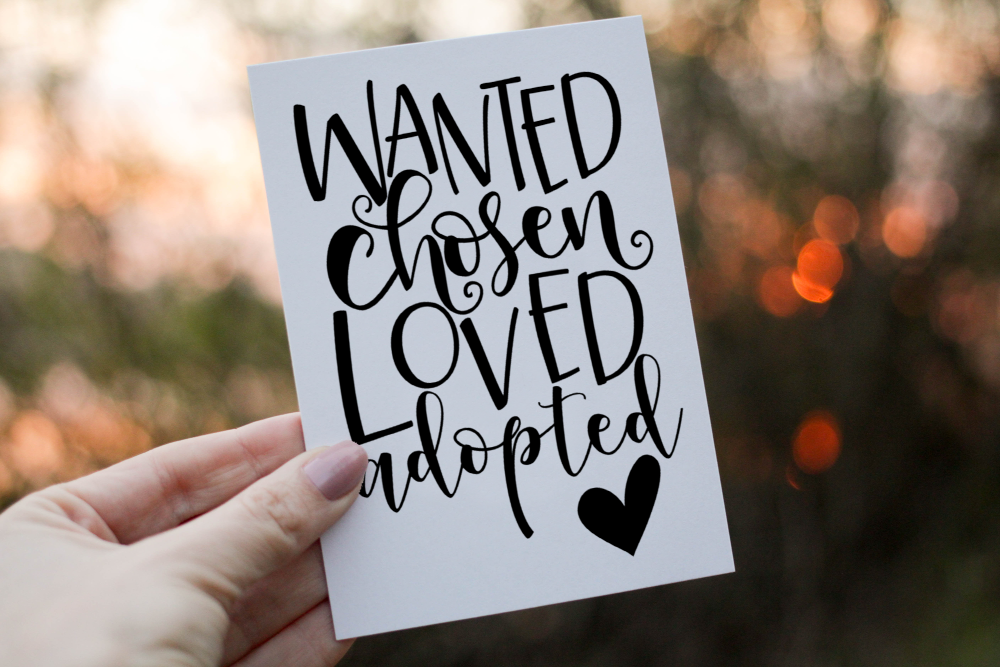 WANTED
chosen
LOVED
adopted